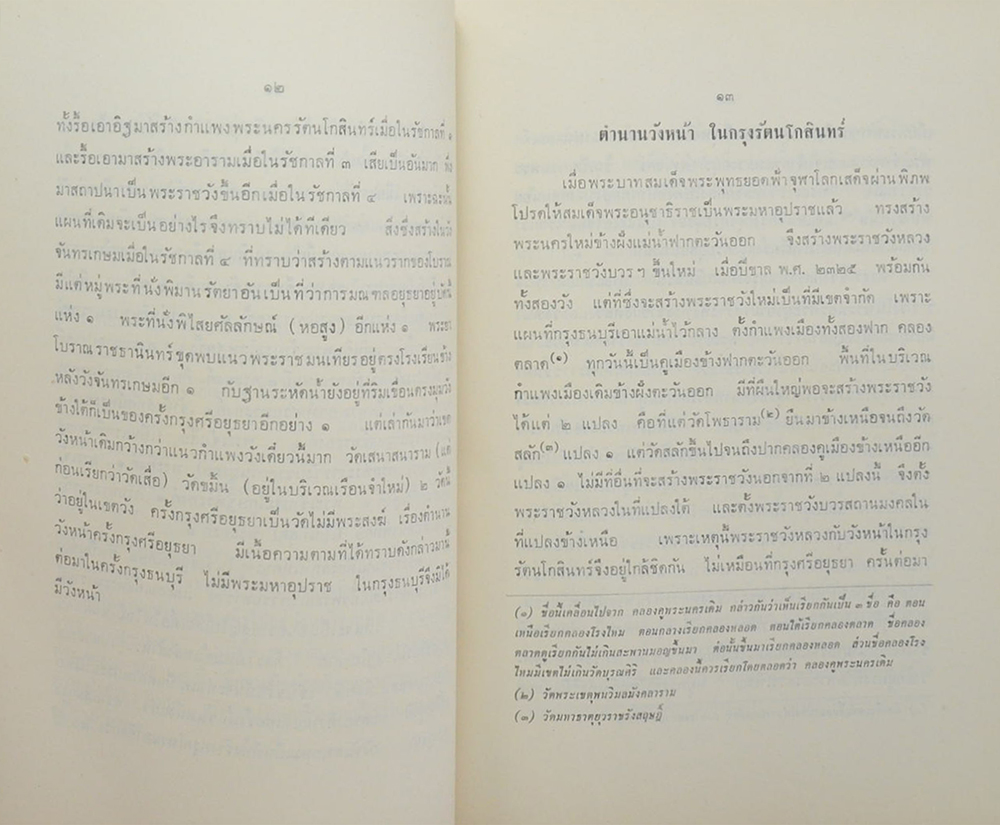 ๑๒
ทั้งรื้อเอาอิฐมาสร้างกำแพงพระนครรัตนโกสินทร์เมื่อในรัชกาลที่ ๑
และรื้อเอามาสร้างพระอารามเมื่อในรัชกาลที่ ๓ เสียเป็นอันมาก พึ่ง
มาสถาปนาเป็นพระราชวังขึ้นอีกเมื่อในรัชกาลที่ ๔ เพราะฉะนั้น
แผนที่เดิมจะเป็นอย่างไรจึงทราบไม่ได้ทีเดียว สิ่งซึ่งสร้างในวัง
จันทรเกษมเมื่อในรัชกาลที่ ๔ ที่ทราบว่าสร้างตามแนวรากของโบราณ
มีแต่หมู่พระที่นั่งพิมานรัตยาอันเป็นที่ว่าการมณฑลอยุธยาอยู่บัดนี้
แห่ง ๑ พระที่นั่งพิไสยศัลลักษณ์ (หอสูง) อีกแห่ง ๑ พระยา
โบราณราชธานินทร์ขุดพบแนวพระราชมนเทียรอยู่ตรงโรงเรียนข้าง
หลังวังจันทรเกษมอีก ๑ กับฐานระหัดน้ำยังอยู่ที่ริมเขื่อนตรงมุมวัง
ข้างใต้ก็เป็นของครั้งกรุงศรีอยุธยาอีกอย่าง ๑ แต่เล่ากันมาว่าเขต
วังหน้าเดิมกว้างกว่าแนวกำแพงวังเดี๋ยวนี้มาก วัดเสนาสนาราม (แต่
ก่อนเรียกว่าวัดเสื่อ) วัดขมิ้น (อยู่ในบริเวณเรือนจำใหม่) ๒ วัดนี้
ว่าอยู่ในเขตวัง ครั้งกรุงศรีอยุธยาเป็นวัดไม่มีพระสงฆ์ เรื่องตำนาน
วังหน้าครั้งกรุงศรีอยุธยา มีเนื้อความตามที่ได้ทราบดังกล่าวมานี้
ต่อมาในครั้งกรุงธนบุรี ไม่มีพระมหาอุปราช ในกรุงธนบุรีจึงมิได้
มีวังหน้า
๑๓
ตำนานวังหน้า ในกรุงรัตนโกสินทร์
เมื่อพระบาทสมเด็จพระพุทธยอดฟ้าจุฬาโลกเสด็จผ่านพิภพ
โปรดให้สมเด็จพระอนุชาธิราชเป็นพระมหาอุปราชแล้ว ทรงสร้าง
พระนครใหม่ข้างฝั่งแม่น้ำฟากตะวันออก จึงสร้างพระราชวังหลวง
และพระราชวังบวร ฯ ขึ้นใหม่ เมื่อปีขาล พ.ศ. ๒๓๒๕ พร้อมกัน
ทั้งสองวัง แต่ที่ซึ่งจะสร้างพระราชวังใหม่เป็นที่มีเขตจำกัด เพราะ
แผนที่กรุงธนบุรีเอาแม่น้ำไว้กลาง ตั้งกำแพงเมืองทั้งสองฟาก คลอง
ตลาด(๑) ทุกวันนี้เป็นคูเมืองข้างฟากตะวันออก พื้นที่ในบริเวณ
กำแพงเมืองเดิมข้างฝั่งตะวันออก มีที่ผืนใหญ่พอจะสร้างพระราชวัง
ได้แต่ ๒ แปลง คือที่แต่วัดโพธาราม(๒) ขึ้นมาข้างเหนือจนถึงวัด
สลัก(๓) แปลง ๑ แต่วัดสลักขึ้นไปจนถึงปากคลองคูเมืองข้างเหนืออีก
แปลง ๑ ไม่มีที่อื่นที่จะสร้างพระราชวังนอกจากที่ ๒ แปลงนี้ จึงตั้ง
พระราชวังหลวงในที่แปลงใต้ และตั้งพระราชวังบวรสถานมงคลใน
ที่แปลงข้างเหนือ เพราะเหตุนี้พระราชวังหลวงกับวังหน้าในกรุง
รัตนโกสินทร์จึงอยู่ใกล้ชิดกัน ไม่เหมือนที่กรุงศรีอยุธยา ครั้นต่อมา
(๑) ชื่อนี้เคลื่อนไปจาก คลองคูพระนครเดิม กล่าวกันว่าเห็นเรียกกันเป็น ๓ ชื่อ คือ ตอน
เหนือเรียกคลองโรงไหม ตอนกลางเรียกคลองหลอด ตอนใต้เรียกคลองตลาด ชื่อคลอง
ตลาดดูเรียกกันไม่เกินสะพานมอญขึ้นมา ต่อนั้นขึ้นมาเรียกคลองหลอด ส่วนชื่อคลองโรง
ไหมมีเขตไม่เกินวัดบุรณศิริ และคลองนี้ควรเรียกโดยตลอดว่า คลองคูพระนครเดิม
(๒) วัดพระเชตุพนวิมลมังคลาราม
(๓) วัดมหาธาตุยุวราชรังสฤษฎิ์